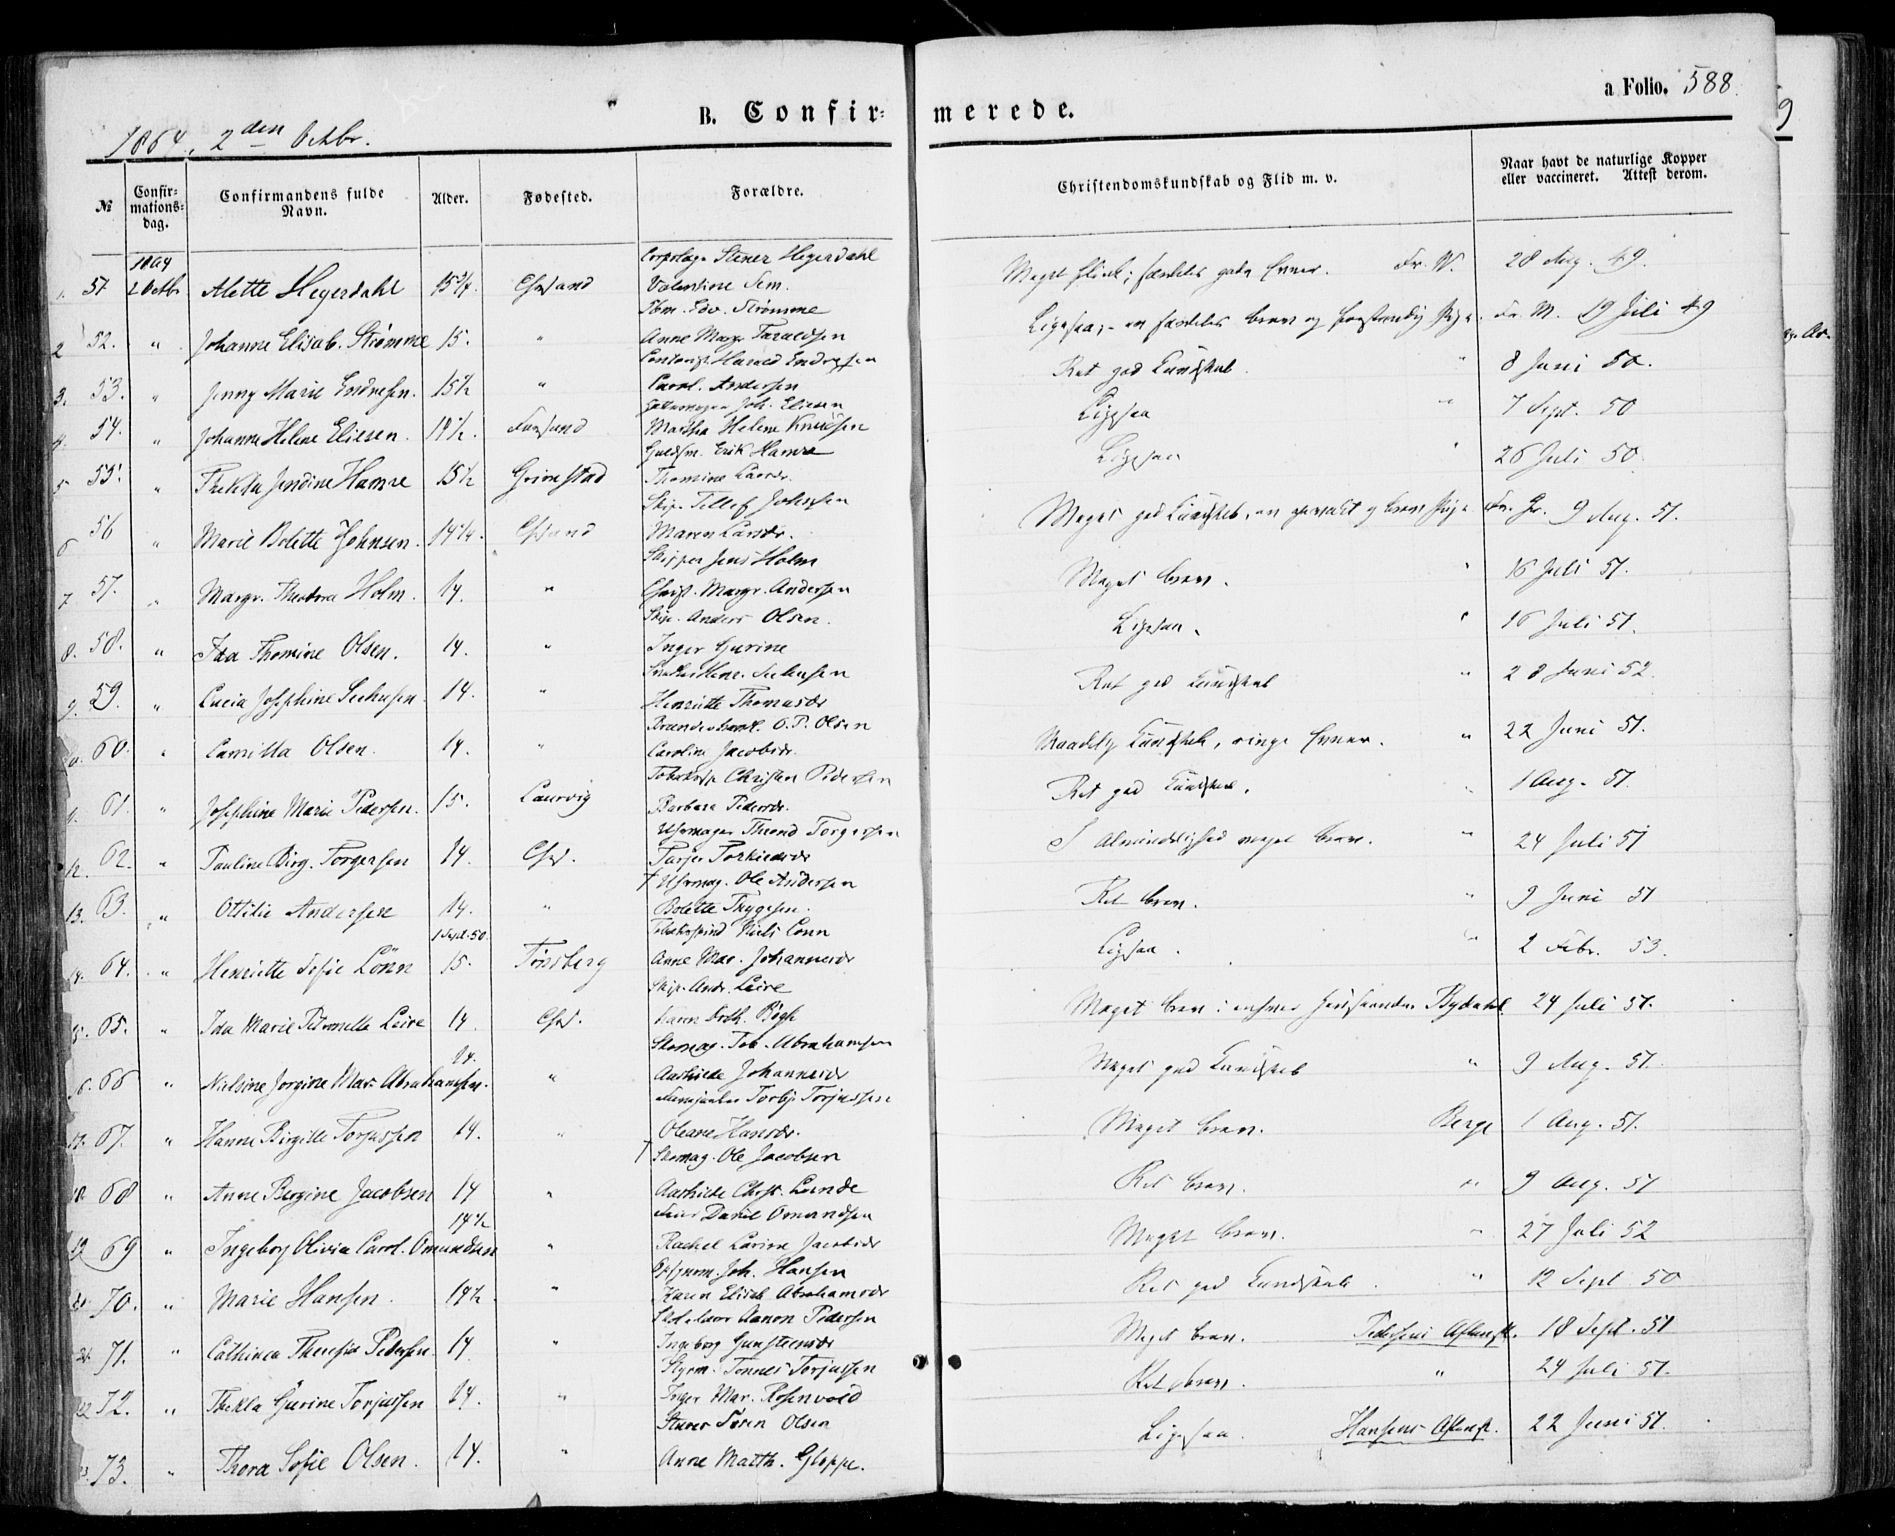 a Folio. 588.
B. Confirmerede.
1864, 2den Octbr.
№ Confirmationsdag. Confirmandens fulde Navn. Alder. Fødested. Forældre. Christendomskundskab og Flid m. v. Naar havt de naturlige Kopper eller vaccineret. Attest derom.
1864
1. 51 2 Octbr Alette Hegerdahl 15 3/4. Chrsand Stener Hegerdahl
Valentine Sem. Meget gode Evner. Fr. W. 28 Aug. 49.
2 52. " Johanne Elisab. Strømme 15. " Edv. Strømme
Anne Margr. Taraldsen Ligesaa, en særdeles brav og forstandig Pige. Fr. M. 19 Juli 49
3. 53. " Jenny Marie Endresen. 15 1/2 " Harald Endresen
Carol. Andersen Ret god Kundskab. " 8 Juni 50.
4. 54. " Johanne Helene Eliesen. 14 1/2. Farsund Joh. Eliesen
Martha Helene Knudsen Ligesaa " 7 Sept. 50
5 55. " Thekla Jendine Hamre 15 1/2 Grimstad Guldsm. Erik Hamre
Thomine Larsdr. Ligesaa " 26 Juli 50.
6 56 " Marie Bolette Johnsen. 14 1/4. Chrsand Skip. Tellef Johnsen
Maren Larsdr. Meget god Kundskab, en og brav Pige Fr. Gr. 9 Aug. 51.
7. 57. " Margr. Theodora Holm. 14. " Skipper Jens Holm
Christ. Margr. Andersen Meget brav. " 16 Juli 51.
8. 58. " Ida Thomine Olsen. 14. " Skip. Anders Olsen.
Inger Gurine Ligesaa. " 16 Juli 51.
9. 59. " Lucia Josephine Seehusen. 14. " Seehusen
Henriette Thomasdr Ret god Kundskab " 28 Juni 52.
10. 60. " Camilla Olsen. 14. " O. P. Olsen
Caroline Jacobsdr. Maadelig Kundskab, ringe Evner. " 22 Juni 51.
11. 61. " Josephine Marie Pedersen. 15. Laurvig Christen Pedersen
Barbara Pedersdr. Ret god Kundskab. " 1 Aug. 51.
12. 62. " Pauline Birg. Torgersen 14. Chrs. Uhrmager Thrond Torgersen
Tarjer Torkildsdr I Almindelighed meget brav. " 24 Juli 51
13. 63. " Ottilie Andersen 14. " † Uhrmag. Ole Andersen
Bolette Thygesen. Ret brav. " 9 Juni 51
14. 64. " Henriette Sofie Lönn 1 Sept. 50. 15. Tønsberg Tobakspind Niels Lönn
Anne Mar. Johannesdr Ligesaa. " 2 Febr. 53.
15. 65. " Ida Marie Petronelle Leire 14. Chrs. Skip. Andr. Leire
Karen Doth. Bøgh Meget brav i enhver Henseende. Rydahl 24 Juli 51.
16. 66 " Nielsine Jorgine Mar. Abrahamsen. 14. " Skomag. Tob. Abrahamsen
Aashilde Johannesdr Meget god Kundskab " 9 Aug. 51.
17. 67. " Hanne Birgitte Torjussen 14. " Torbj. Torjussen
Oleane Hansdr. Meget brav. Berge 1 Aug. 51.
18. 68 " Anne Bergine Jacobsen 14 " † Skomag. Ole Jacobsen
Aashilde Christ. Lunde Ret brav. " 9 Aug. 51
19 69 " Ingeborg Olivia Carol. Omundsen 14 1/2 " Daniel Omundsen
Rachel Larine Jacobsdr Meget brav. " 27 Juli 52
20. 70. " Marie Hansen. 14 1/2. " Joh. Hansen
Karen Elisab. Abrahamsdr Ret god Kundskab. " 12 Sept. 50
21. 71. " Cathinca Theresia Pedersen. 14. " Aanon Pedersen
Ingeborg Gunsteensdr Meget brav. Pedersens Aftensk. 18 Sept. 51
22 72. " Thekla Gurine Torjussen 14. " Styrm. Tønnes Torjussen
Inger Mar. Rosenvold Ret brav. " 24 Juli 51.
23. 73. " Thora Sofie Olsen. 14. " Stuver Søren Olsen
Anne Matth. Gloppe. Ligesaa. Hansens Aftensk. 22 Juni 51.